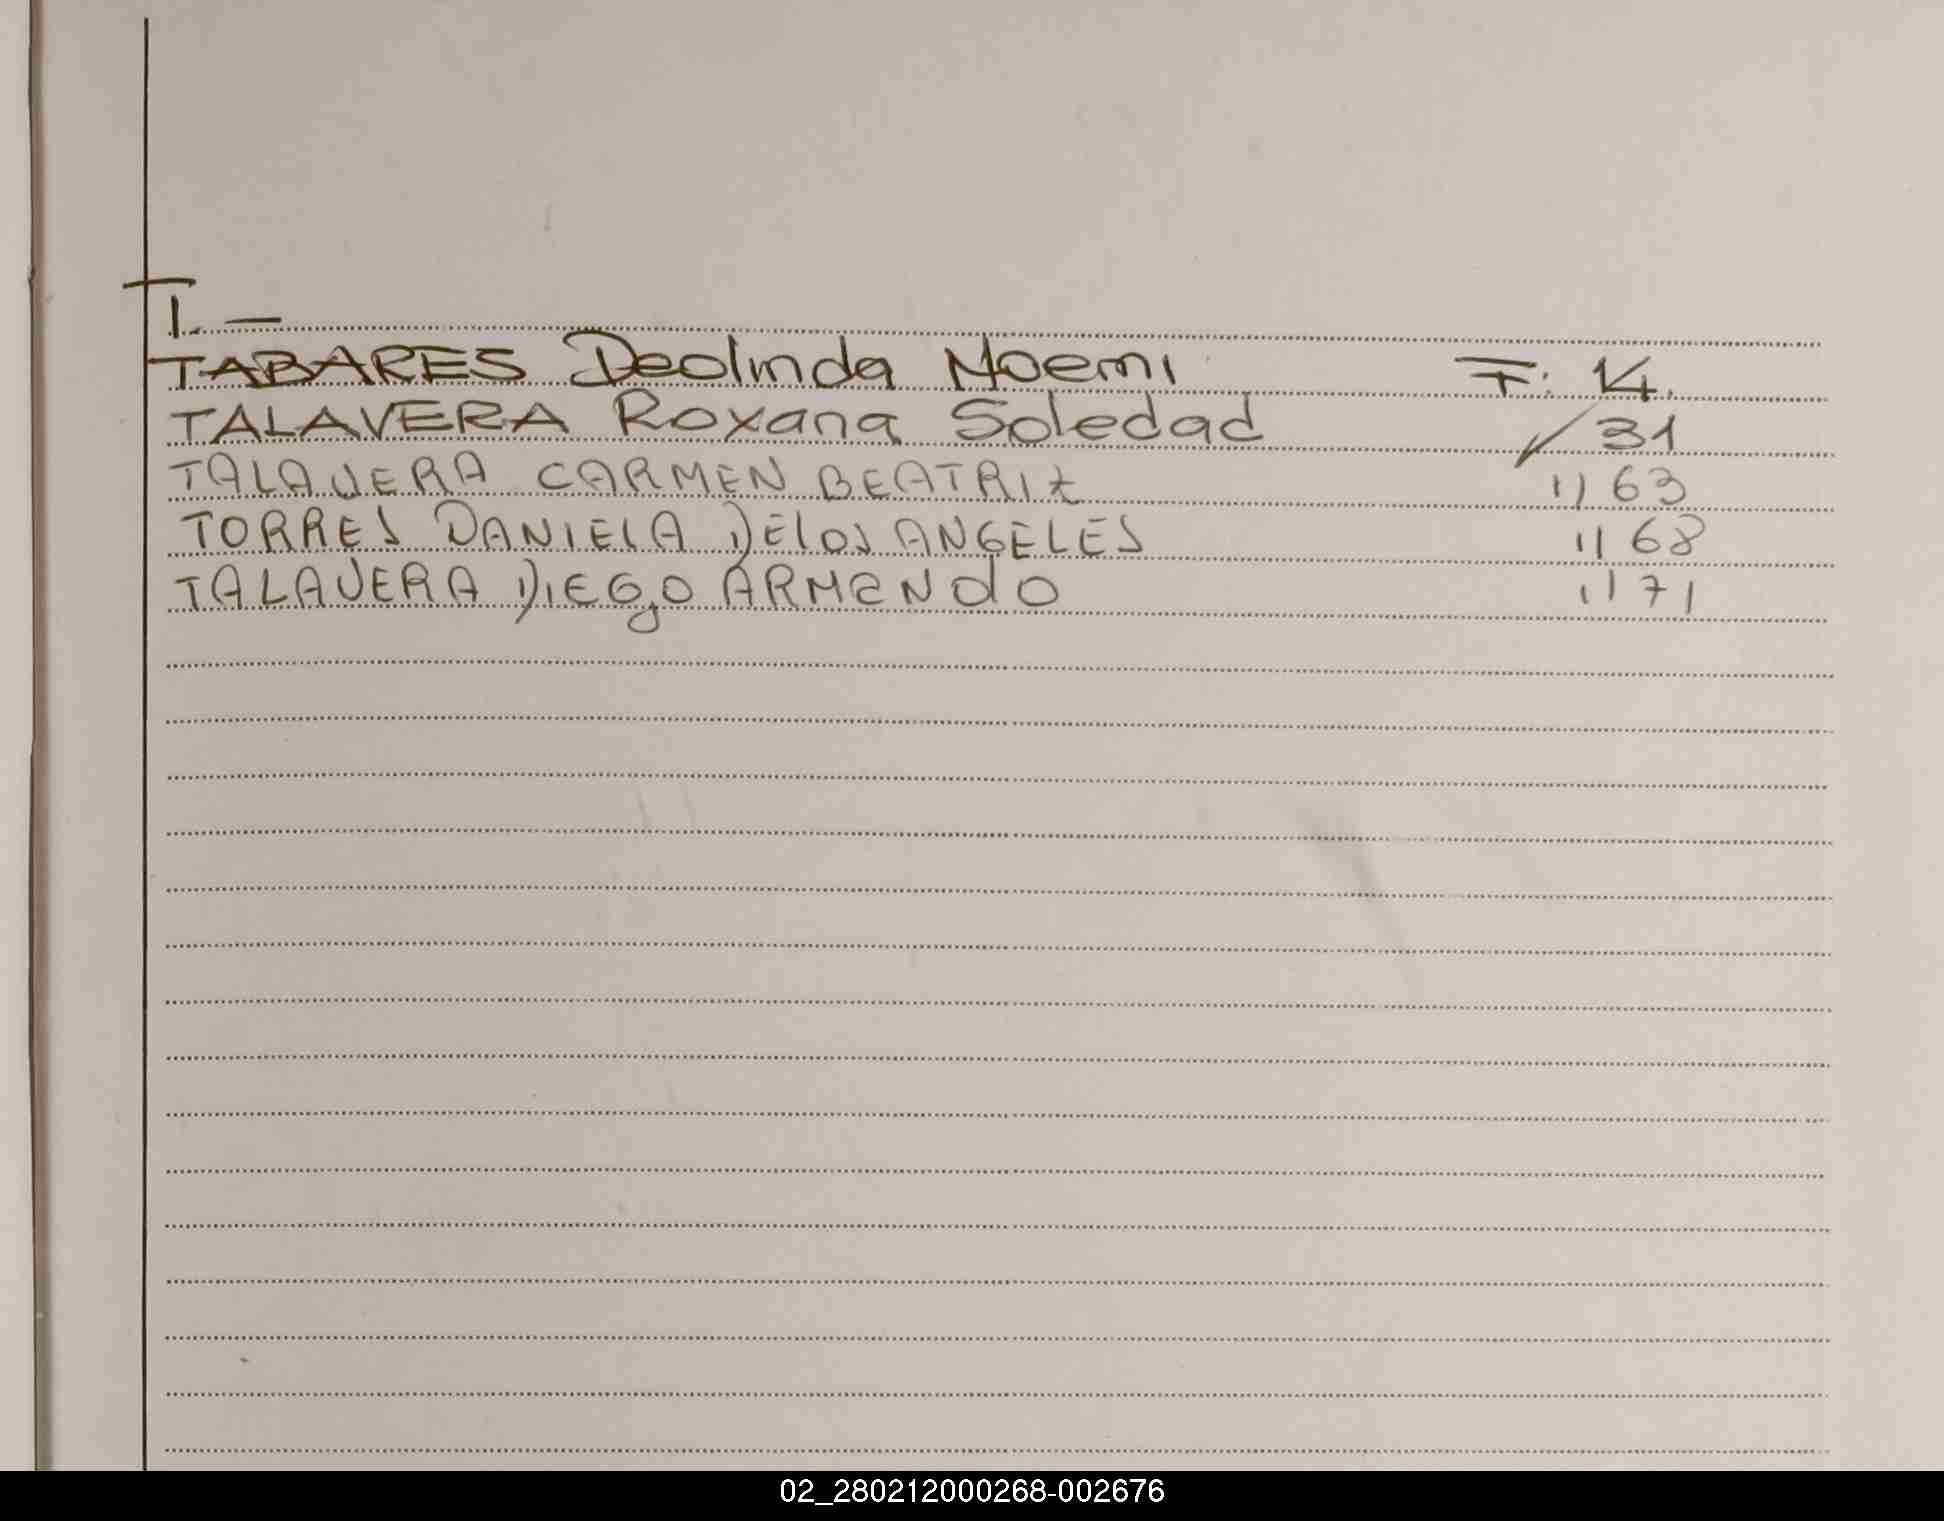 T. —
TABARES Deolinda Noemi F: 14.
TALAVERA Roxana Soledad / 31
TALAVERA CARMEN BEATRIZ 11 63
TORRES DANIELA DELOS ANGELES 11 68
TALAVERA DIEGO ARMANDO 11 71
02_280212000268-002676